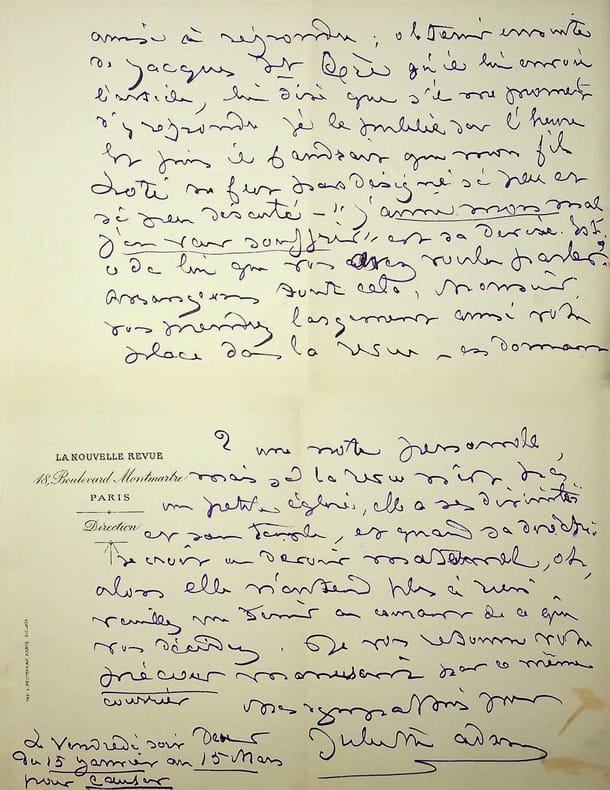 amie à répondre ; obtenir ensuite
de Jacques St Cère qu'il lui envoie
l'article, lui dire que s'il me promet
d'y répondre je le publie sur l'heure
Et puis il faudrait que mon fils
Loti ne fut pas désigné si peu et
si peu discuté – "j'aime mon mal
j'en veux souffrir" est sa devise. Est-
ce de lui que vous avez voulu parler ?
Arrangeons tout cela, Monsieur,
vous prendrez largement ainsi votre
place dans la revue – en donnant
une note personnelle,
LA NOUVELLE REVUE
18, Boulevard Montmartre
PARIS
Direction
mais si la revue n'est pas
une petite église, elle a ses divinités
et son temple, et quand sa directrice
se croit un devoir maternel, oh,
alors elle n'entend plus à rien
veuillez me tenir au courant de ce que
vous décidez. Je vous retourne votre
précieux manuscrit par ce même
courrier
Juliette Adam
Le Vendredi soir
du 15 janvier au 15 Mars
pour causer